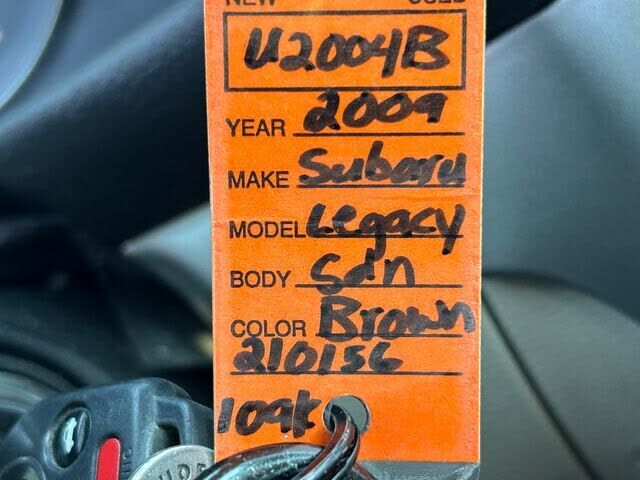 NEW USED
U2004B
YEAR 2009
MAKE Subaru
MODEL Legacy
BODY Sdn
COLOR Brown
210156
109k